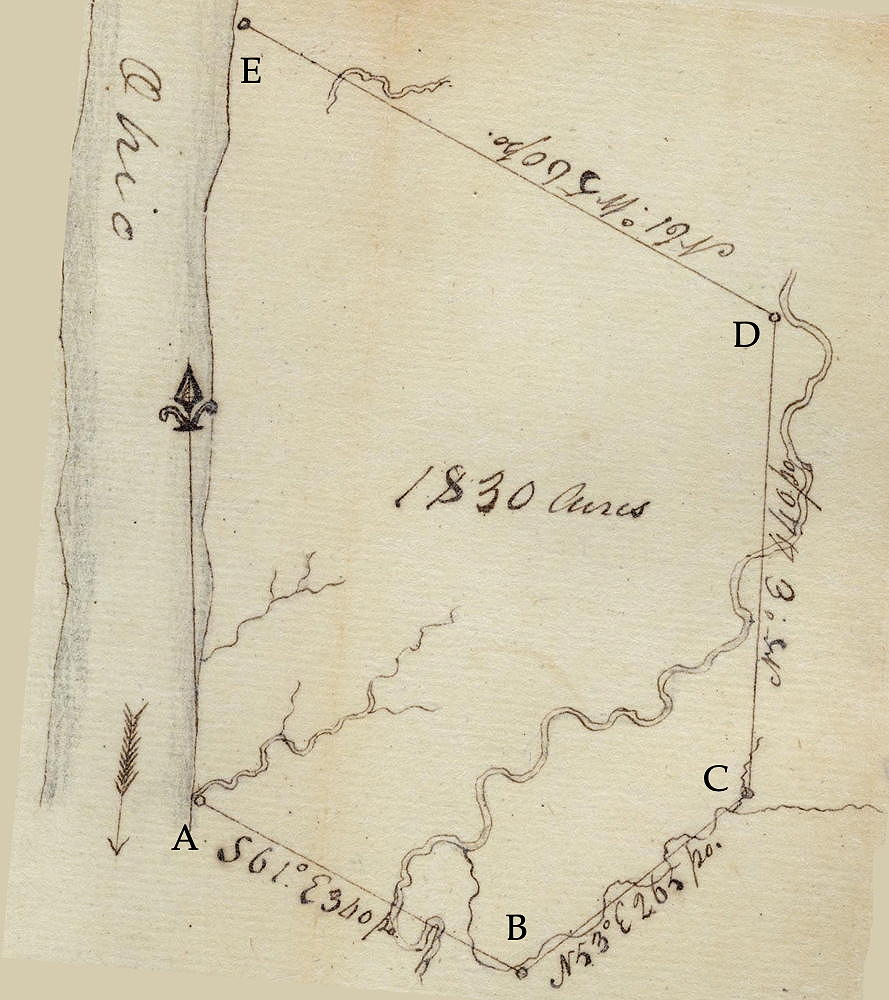 Ohio
E
N61°. W 560 po.
D
1830 Acres
N5°. E 440 po.
C
A
S61°. E 340 po.
B
N53° E 265 po.